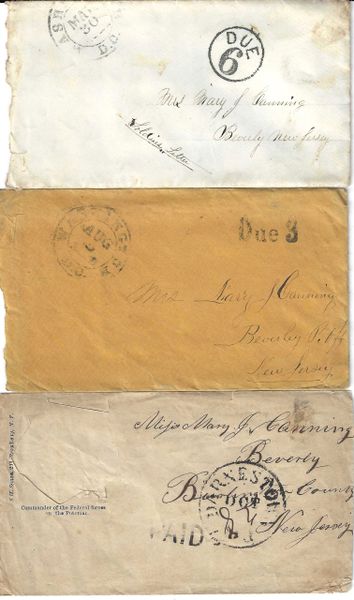 WASH
MAY
30
D.C.
DUE
6
Mrs Mary J Canning
Beverly New Jersey
Soldiers Letter
WASHINGTON
AUG
Due 3
Mrs Mary J Canning
Beverly P. Off
New Jersey
Miss Mary J. Canning
Beverly
County
New Jersey
DARNESTOWN
OCT
PAID
Commander of the Federal forces
on the Potomac.